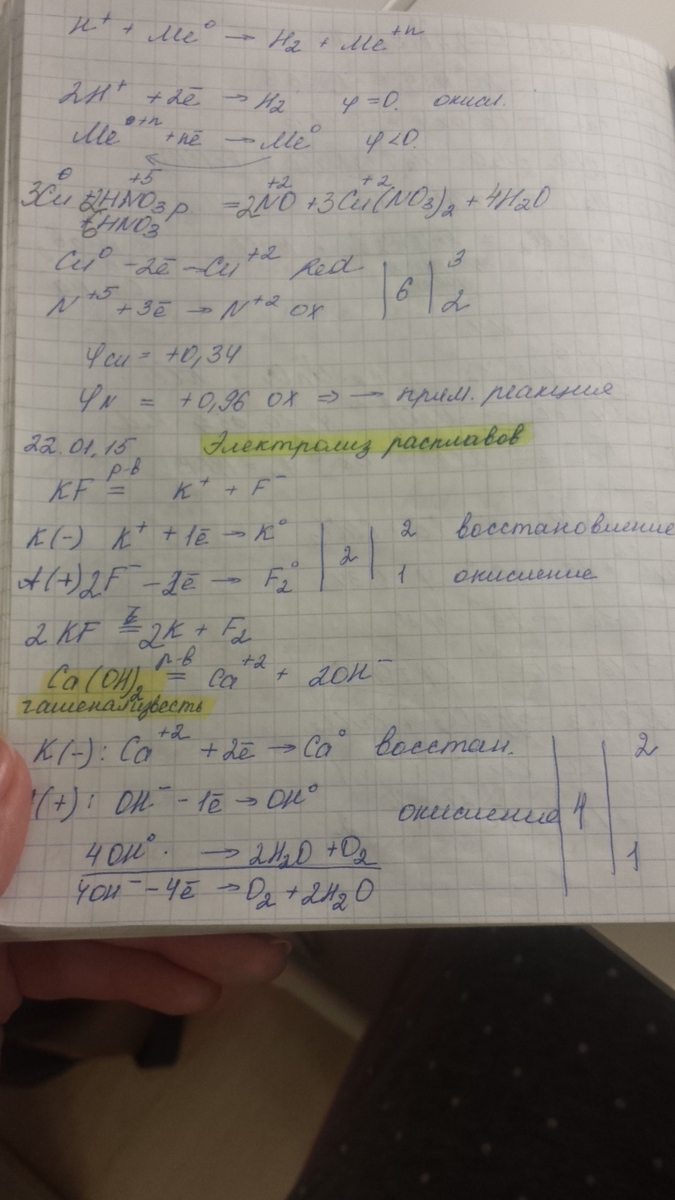 H⁺ + Me⁰ → H₂ + Me⁺ⁿ
2H⁺ + 2ē → H₂ φ = 0. окисл.
Me⁺ⁿ + nē → Me⁰ φ < 0.
3Cu⁰ + 2HN⁺⁵O₃ р = 2N⁺²O + 3Cu⁺²(NO₃)₂ + 4H₂O
+ 6HNO₃
Cu⁰ - 2ē → Cu⁺² Red | 6 | 3
N⁺⁵ + 3ē → N⁺² ox 2
φcu = +0,34
φN = +0,96 ox ⇒ → прям. реакция
22.01.15 Электролиз расплавов
KF р-в = K⁺ + F⁻
K(-) K⁺ + 1ē → K⁰ | 2 | 2 восстановление
A(+) 2F⁻ - 2ē → F₂⁰ 1 окисление
2KF = 2K + F₂
Ca(OH)₂ р-в = Ca⁺² + 2OH⁻
гашеная известь
K(-): Ca⁺² + 2ē → Ca⁰ восстан. 2
(+): OH⁻ - 1ē → OH⁰ окисление | 4 |
4OH⁰ → 2H₂O + O₂ 1
4OH⁻ - 4ē → O₂ + 2H₂O